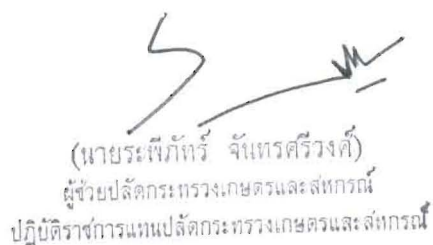 (นายระพีภัทร์ จันทรศรีวงศ์)
ผู้ช่วยปลัดกระทรวงเกษตรและสหกรณ์
ปฏิบัติราชการแทนปลัดกระทรวงเกษตรและสหกรณ์